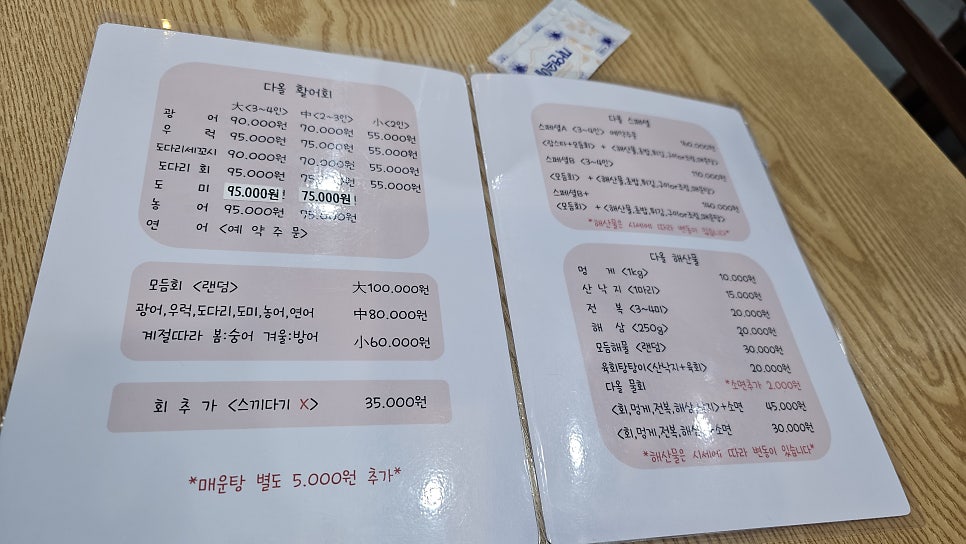 다올 활어회
大<3~4인> 中<2~3인> 小<2인>
광 어 90.000원 70.000원 55.000원
우 럭 95.000원 75.000원 55.000원
도다리세꼬시 90.000원 70.000원 55.000원
도다리 회 95.000원 75.000원 55.000원
도 미 95.000원! 75.000원!
농 어 95.000원 75.000원
연 어 <예약 주문>
모듬회 <랜덤> 大100.000원
광어,우럭,도다리,도미,농어,연어 中80.000원
계절따라 봄:숭어 겨울:방어 小60.000원
회 추 가 <스끼다기 X> 35.000원
*매운탕 별도 5.000원 추가*
다올 스페셜
스페셜A <3~4인> 예약주문
<랍스타+모듬회> + <해산물,초밥,튀김,구이or조림,매운탕>
스페셜B <3~4인> 110.000원
<모듬회> + <해산물,초밥,튀김,구이or조림,매운탕>
스페셜B+ 140.000원
<모듬회> + <해산물,초밥,튀김,구이or조림,매운탕>
*해산물은 시세에 따라 변동이 있습니다*
다올 해산물
멍 게 <1kg> 10.000원
산 낙 지 <1마리> 15.000원
전 복 <3~4미> 20.000원
해 삼 <250g> 20.000원
모듬해물 <랜덤> 30.000원
육회탕탕이<산낙지+육회> 20.000원
다올 물회 *소면추가 2.000원
<회,멍게,전복,해삼,낙지>+소면 45.000원
<회,멍게,전복,해삼>+소면 30.000원
*해산물은 시세에 따라 변동이 있습니다*